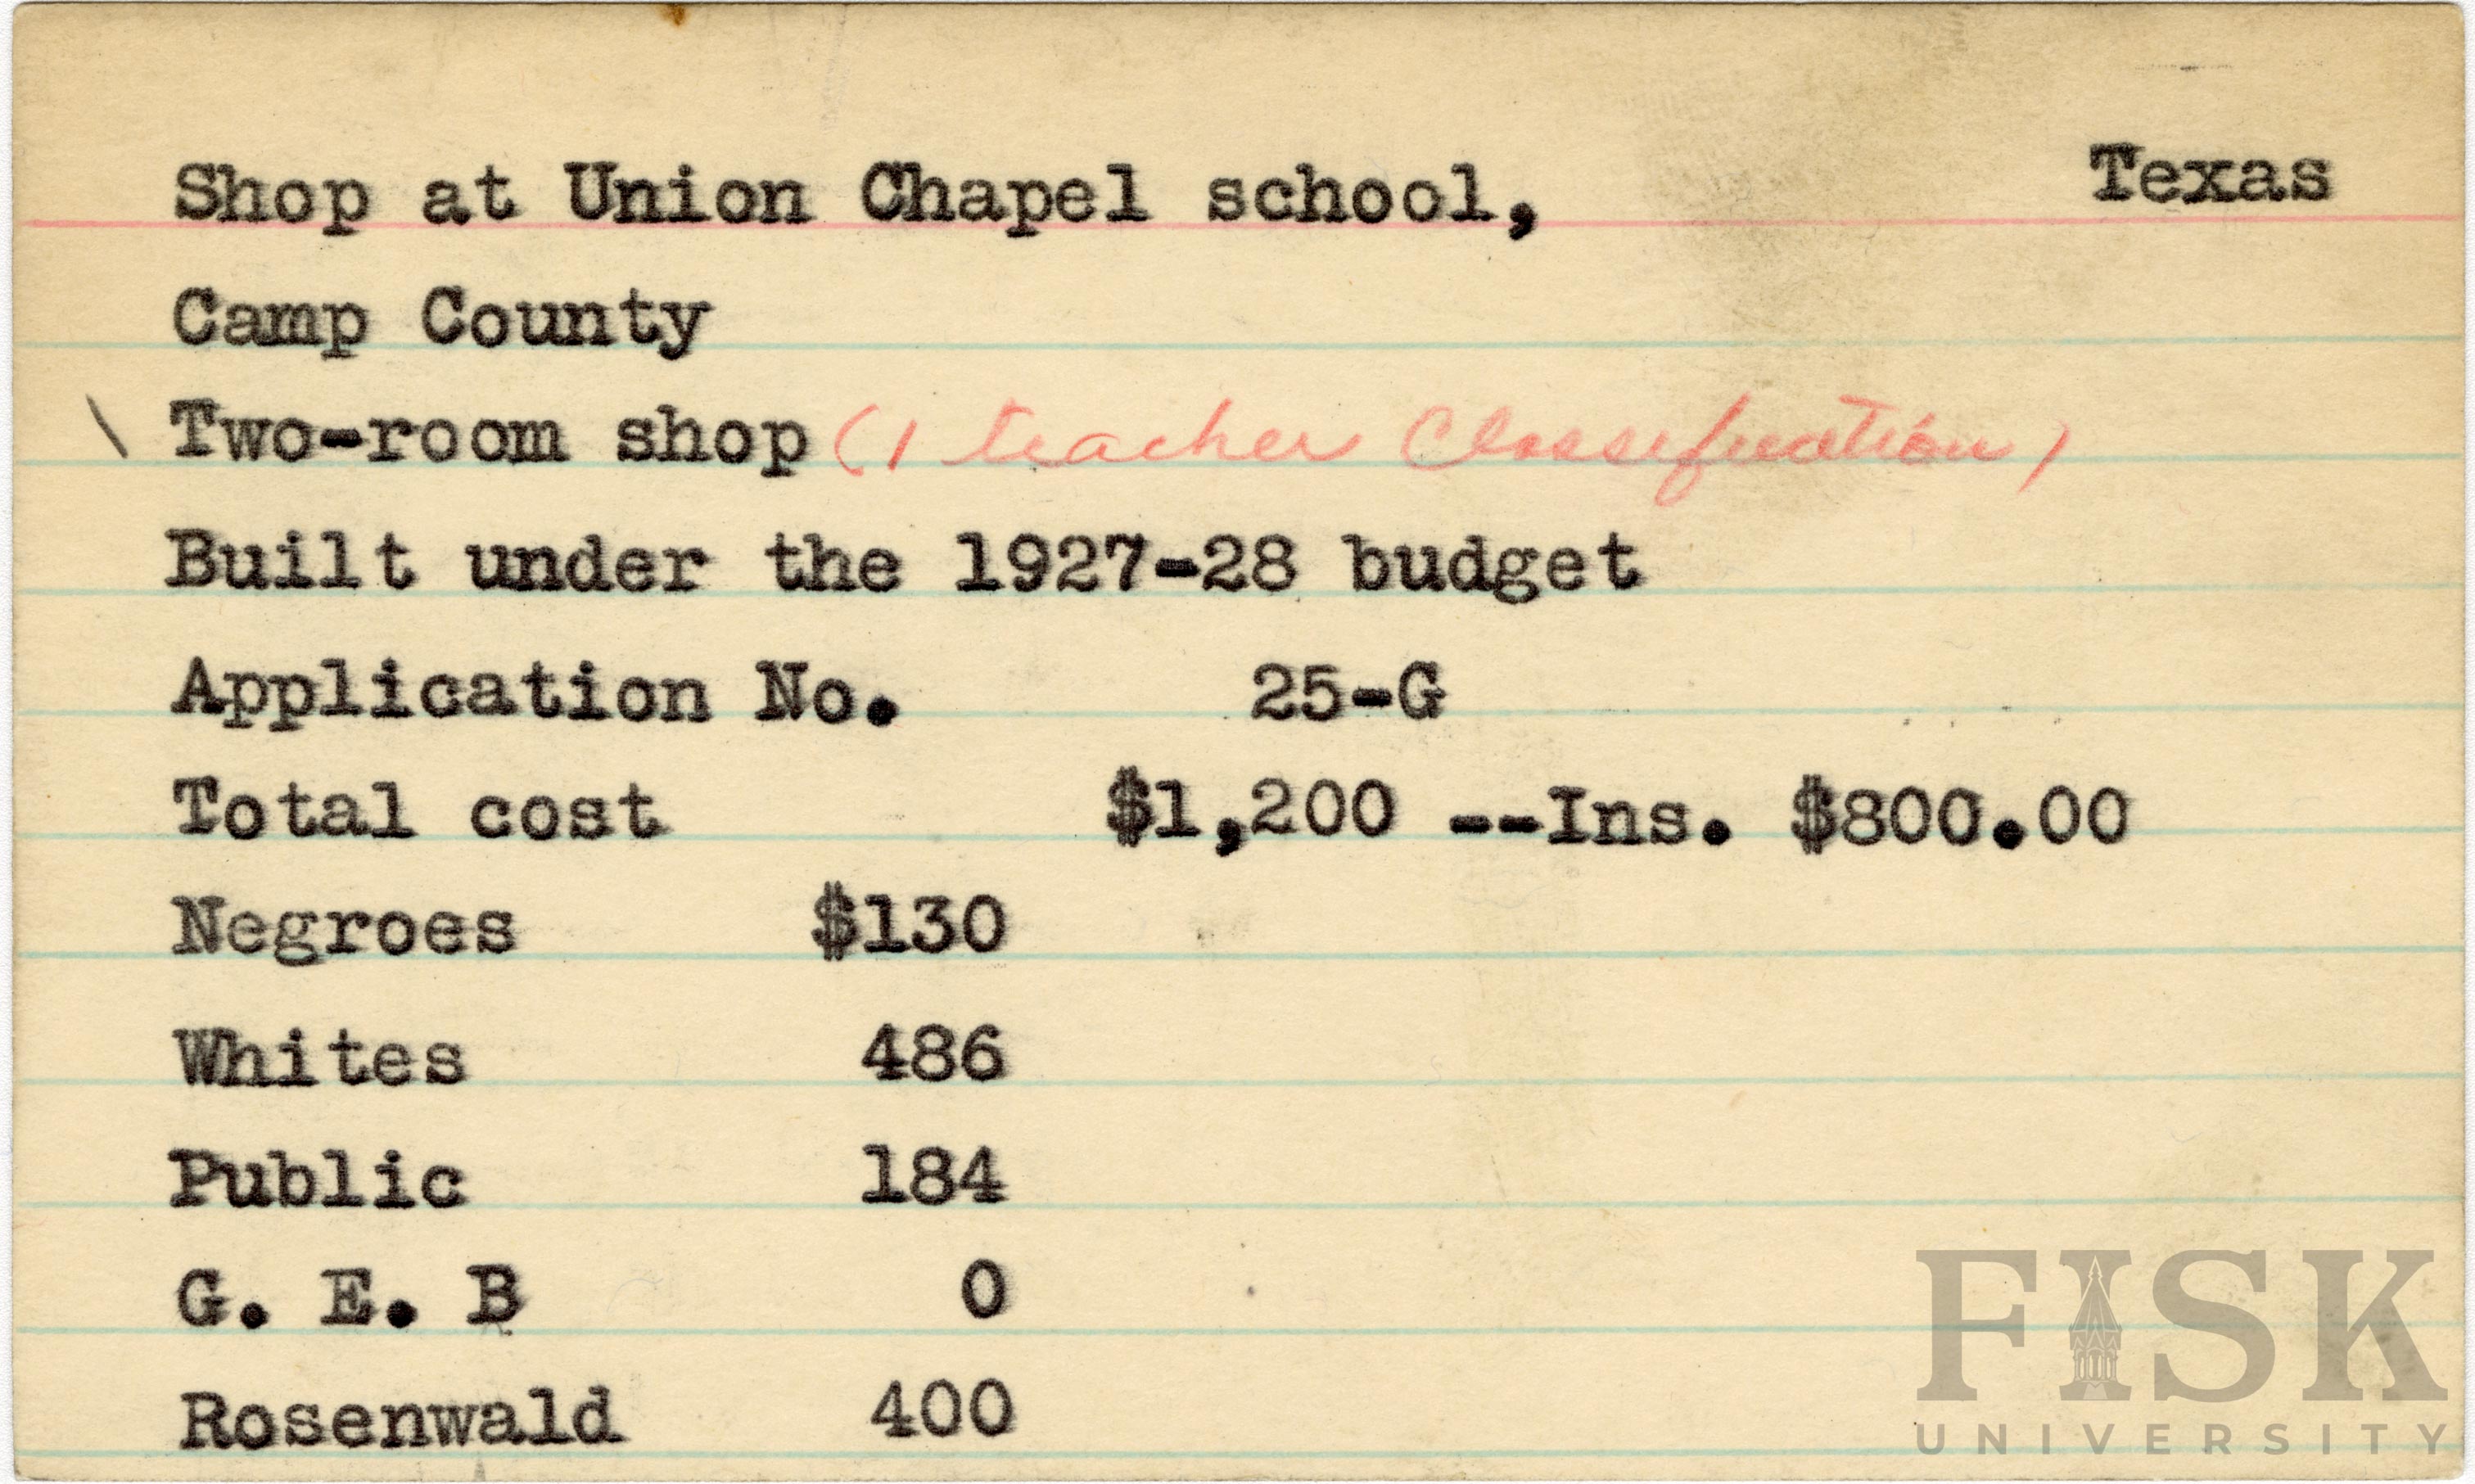 Shop at Union Chapel school, Texas
Camp County
\ Two-room shop (1 teacher Classification)
Built under the 1927-28 budget
Application No. 25-G
Total cost $1,200 --Ins. $800.00
Negroes $130
Whites 486
Public 184
G. E. B 0
Rosenwald 400
FISK
UNIVERSITY